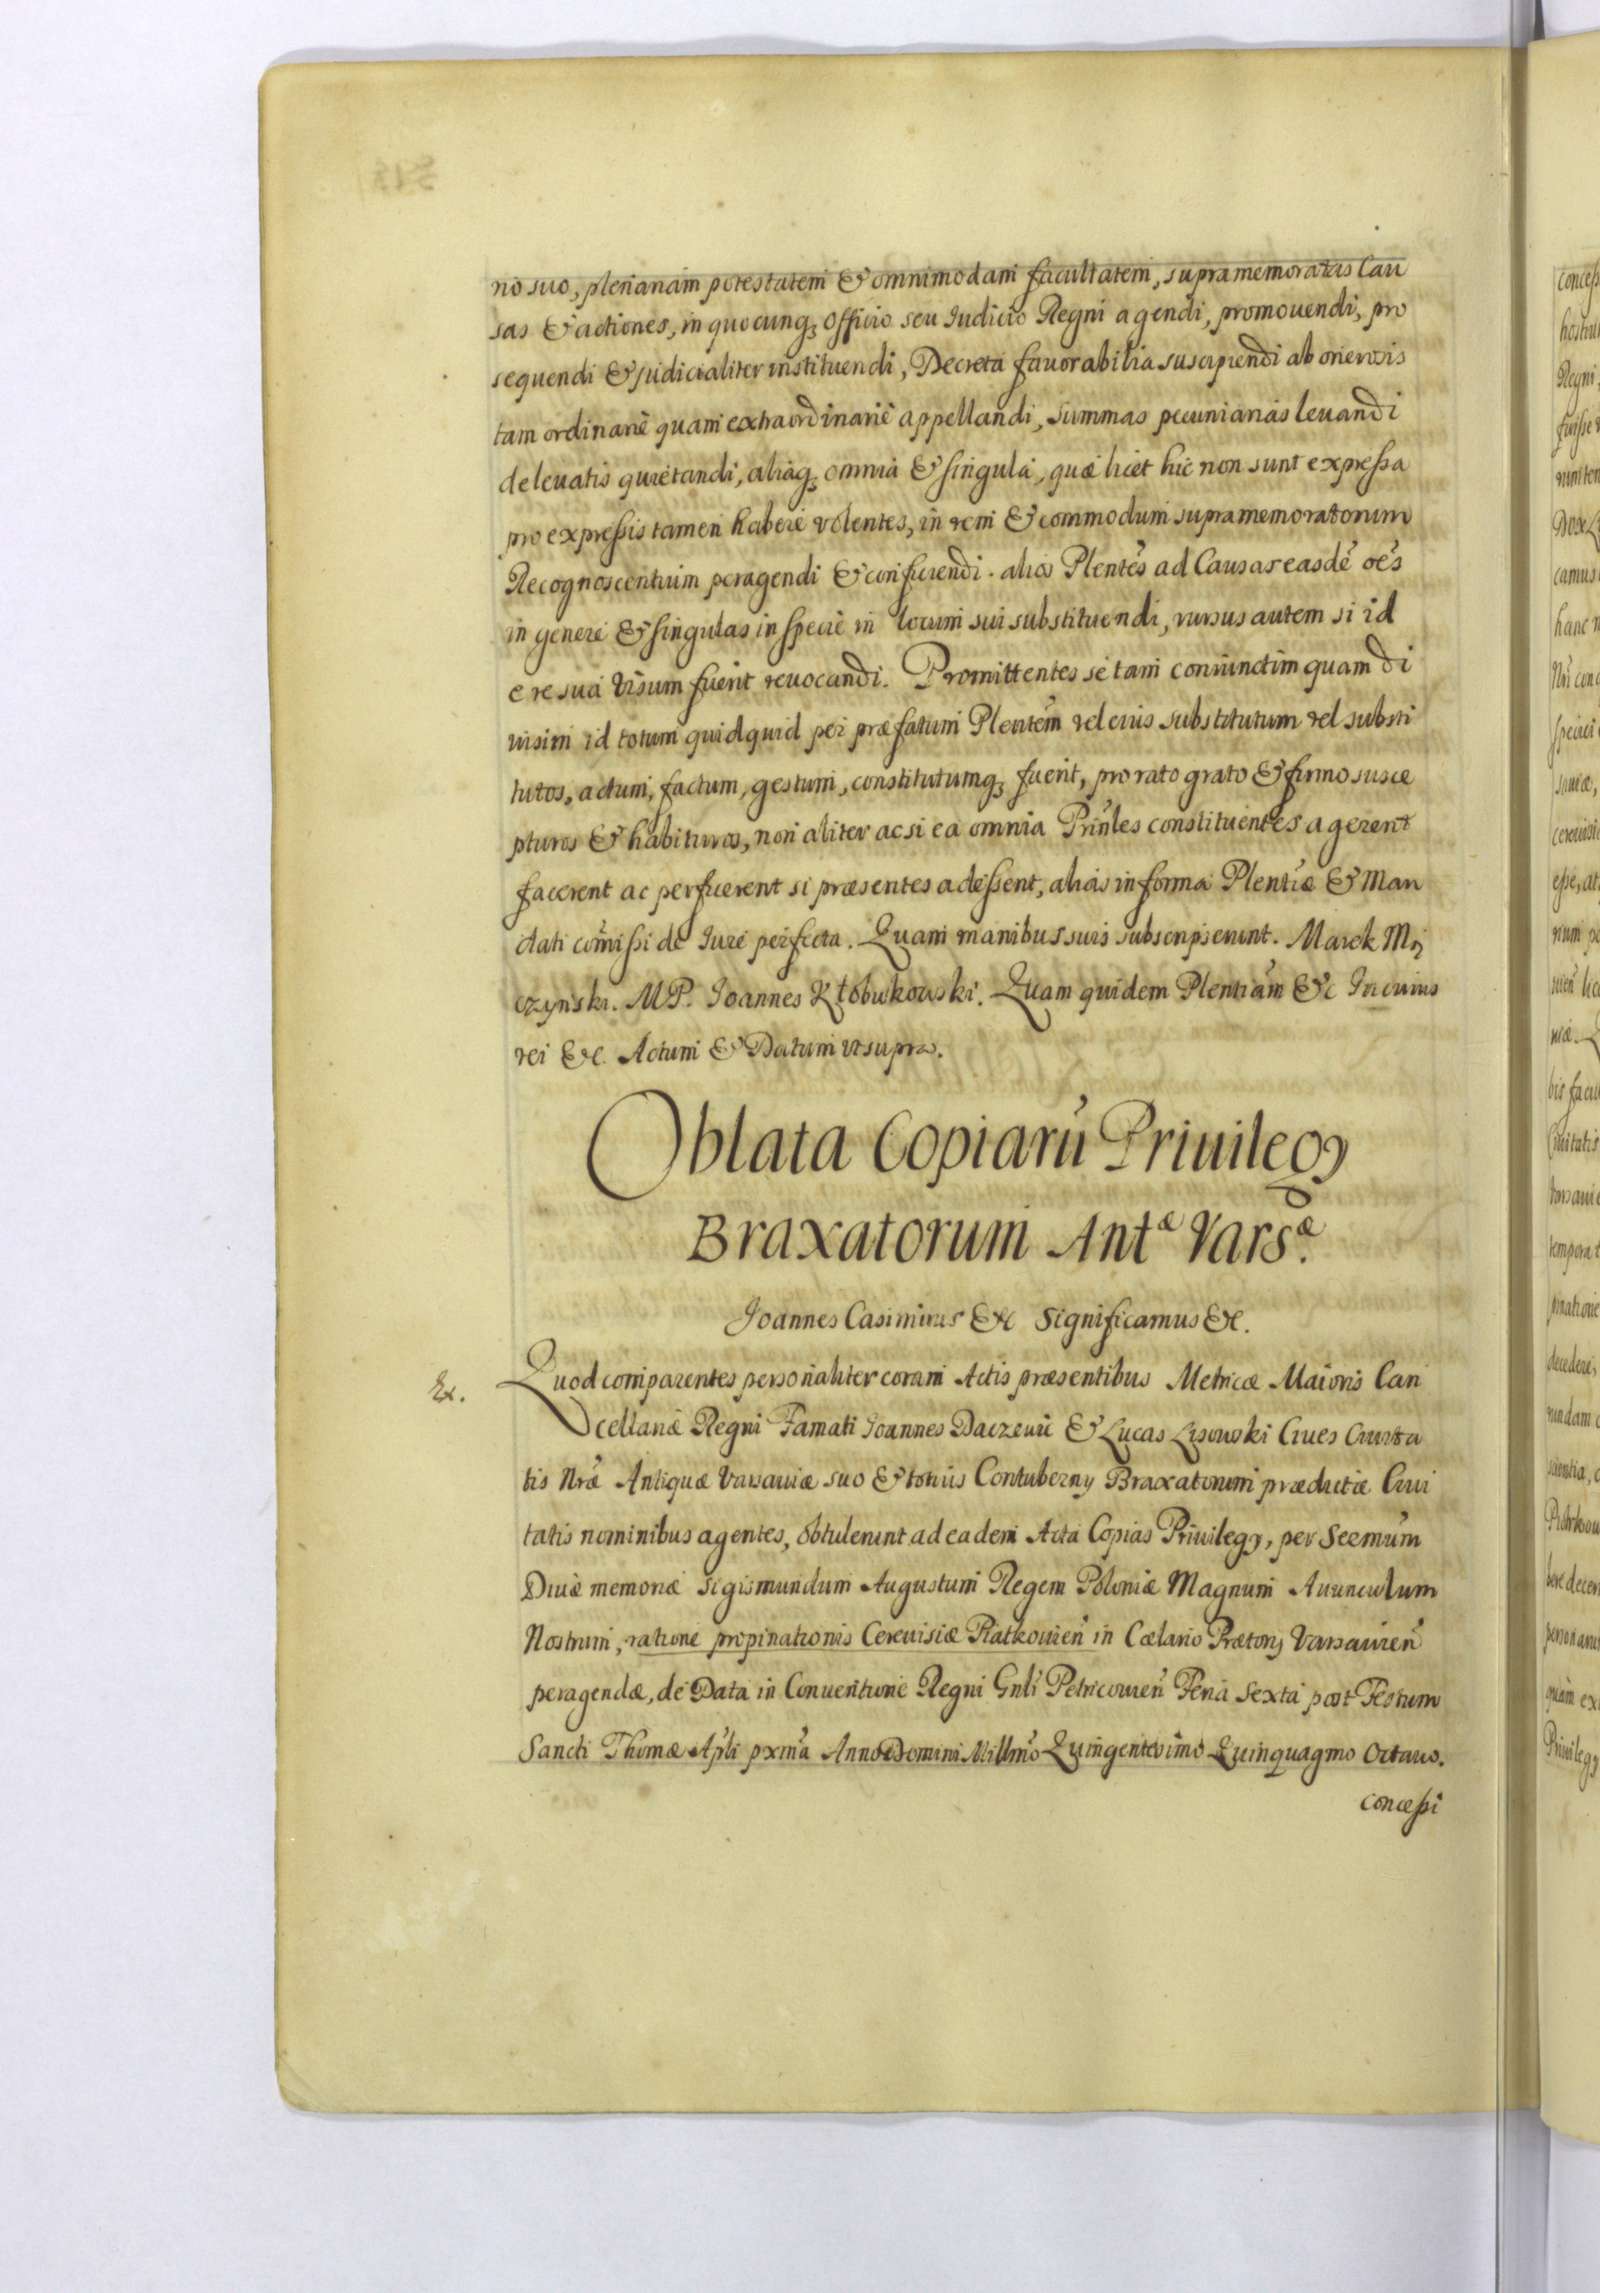 no suo, plenariam potestatem & omnimodam facultatem, supramemoratas Cau
sas & actiones, in quocunq; Officio seu Iudicio Regni agendi, promouendi, pro
sequendi & judicialiter instituendi, Decreta fauorabilia suscipiendi ab onerosis
tam ordinariè quam extraordinariè appellandi, summas pecuniarias leuandi
de leuatis quietandi, aliaq; omnia & singula, quæ licet hic non sunt expressa
pro expressis tamen habere volentes, in rem & commodum supramemoratorum
Recognoscentium peragendi & conficiendi. alios Plentes ad Causas easdẽ oẽs
in genere & singulas in specie in locum sui substituendi, rursus autem si id
e re sua visum fuerit reuocandi. Promittentes se tam coniunctim quam di
uisim id totum quidquid per præfatum Plentem vel eius substitutum vel substi
tutos, actum, factum, gestum, constitutumq; fuerit, pro rato grato & firmo susce
pturos & habituros, non aliter ac si ea omnia Prinles constituentes agerent
facerent ac perficerent si præsentes adessent, alias in forma Plentiæ & Man
dati cõmissi de Iure perfecta. Quam manibus suis subscripserunt. Marek
czynski. MP. Joannes Kłobukowski. Quam quidem Plentiam &c In cuius
rei &c. Actum & Datum vt supra.
Oblata Copiarũ Priuilegy
Braxatorum Antæ Varsæ.
Joannes Casimirus &c Significamus &c.
Ex. Quod comparentes personaliter coram Actis præsentibus Metricæ Maioris Can
cellariæ Regni Famati Joannes Daczewic & Lucas Lisowski Ciues Ciuita
tis Nræ Antiquæ Varsauiæ suo & totius Contuberny Braxatorum prædictæ Ciui
tatis nominibus agentes, obtulerunt ad eadem Acta Copias Priuilegy, per Seemum
Diuæ memoriæ Sigismundum Augustum Regem Poloniæ Magnum Auunculum
Nostrum, ratione propinationis Cereuisiæ Piatkouien in Cælario Prætory Varsauien
peragendæ, de Data in Conuentione Regni Gnli Petricouien Feria Sexta post Festum
Sancti Thomæ Apli pxma Anno Domini Millmo Quingentesimo Quinquagmo Octauo.
concessi